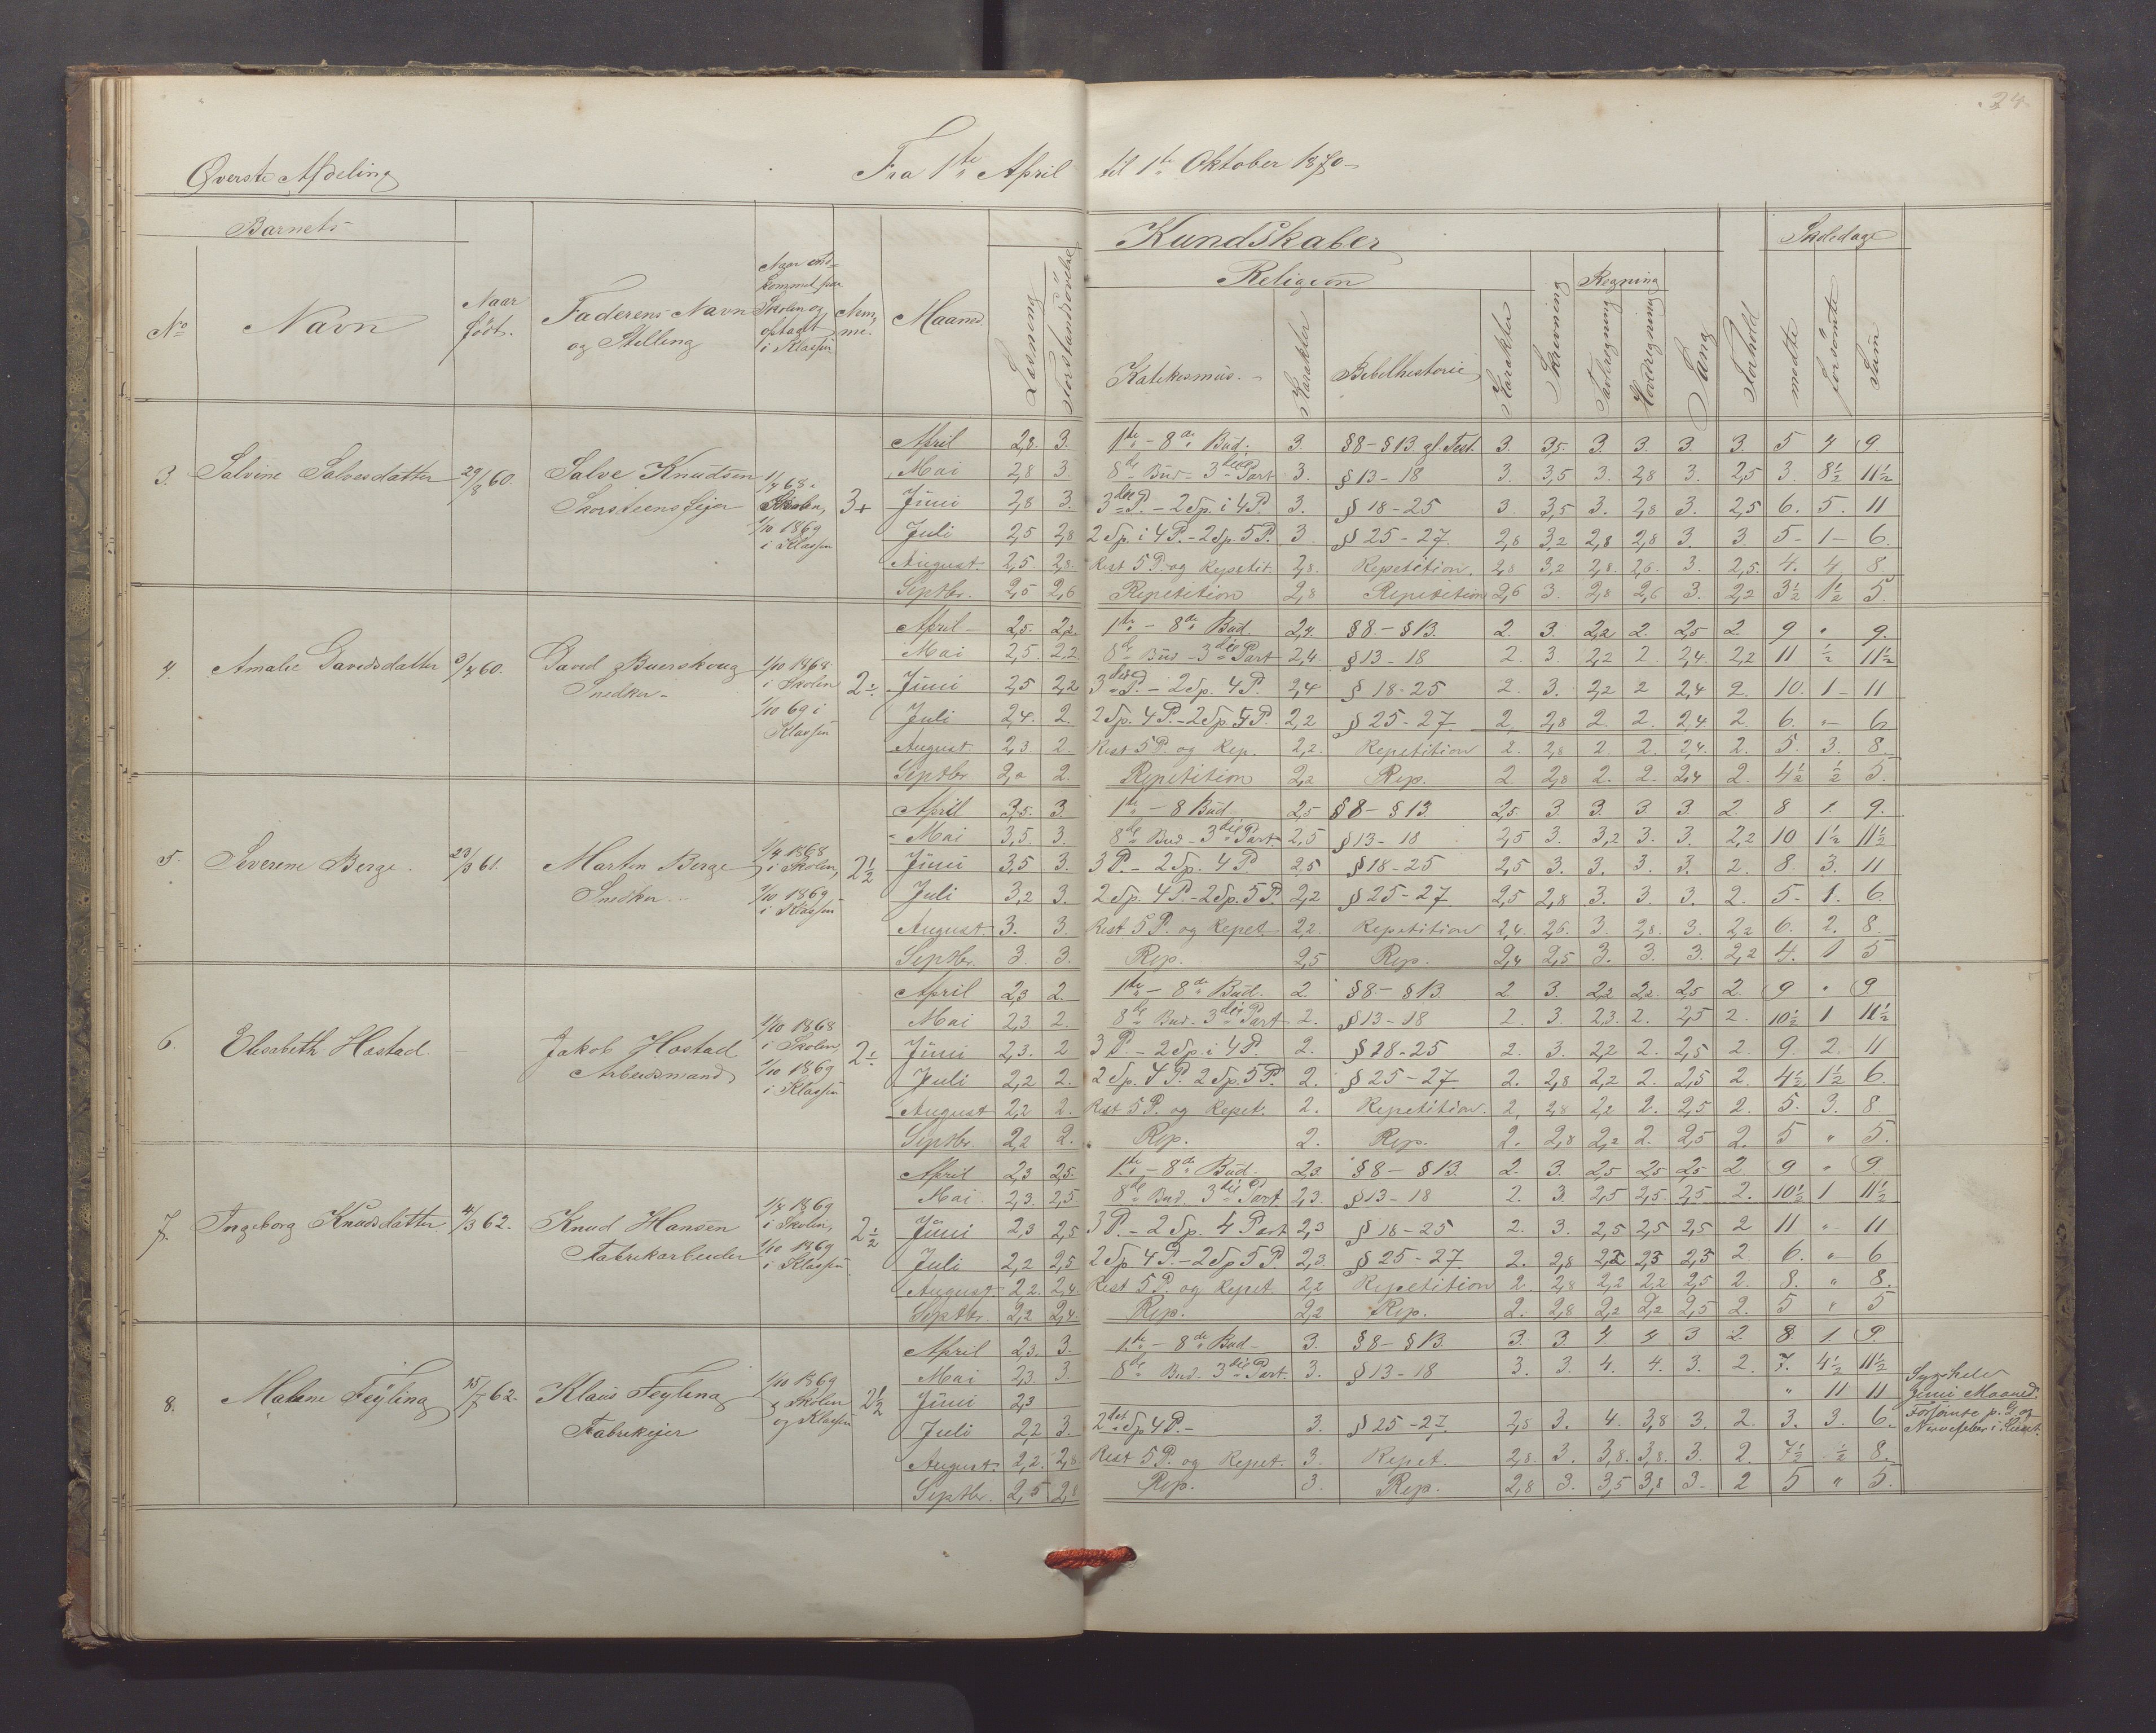 24
Øverste Afdeling Fra 1ste April til 1ste Oktober 1870
Barnets Kundskaber Skoledage
Religion Regning
No Navn Naar født. Faderens Navn og Stilling Skolen og optaget i Klassen Nemme. Maaned Læsning Forstandsövelse Katekismus. Karakter Bibelhistorie Karakter Skrivning Tavleregning Hovedregning Sang Forhold mødte forsömte Sum
3. Salvine Salvesdatter 29/8 60. Salve Knudsen Skorsteensfeier 1/4 68 i Skolen, 1/10 1869 i Klassen 3+
April 2,8. 3. 1ste - 8de Bud. 3. §8 - §13 gl. Test. 3. 3,5. 3. 3. 3. 3. 5 4 9.
Mai 2,8 3. 8de Bud - 3die Part 3. §13 - 18 3. 3,5 3. 2,8 3. 2,5 3. 8½ 11½
Juni 2,8 3. 3die P. - 2 Sp. i 4 P. 3. §18 - 25 3. 3,5 3. 2,8 3. 2,5 6. 5. 11
Juli 2,5 2,8 2 Sp. i 4 P. - 2 Sp. 5 P. 3. §25 - 27. 2,8 3,2 2,8 2,8 3. 3. 5 - 1 - 6.
August. 2,5. 2,8. Rest 5 P. og Repetit. 2,8. Repetition. 2,8 3,2 2,8. 2,6. 3. 2,5. 4. 4 8.
Septbr. 2,5 2,6 Repetition 2,8 Repetition 2,6 3. 2,8 2,6 3. 2,2 3½ 1½ 5.
4. Amalie Davidsdatter 3/4 60. David Buerskoug Snedker 1/10 1868 i Skolen 1/10 69 i Klassen 2÷
April 2,5. 2,2. 1ste - 8de Bud. 2,4 §8 - §13. 2. 3. 2,2 2. 2,5 2. 9 " 9.
Mai 2,5. 2,2 8de Bud - 3die Part 2,4. §13 - 18 2. 3. 2,2 2. 2,4. 2,2 11 ½ 11½
Juni 2,5 2,2 3die P. - 2 Sp. 4 P. 2,4 §18 - 25 2. 3. 2,2 2 2,4 2. 10. 1 - 11
Juli 2,4. 2. 2 Sp. 4 P. - 2 Sp. 5 P. 2,2 §25 - 27. 2. 2,8 2. 2. 2,4. 2. 6. " 6
August. 2,3. 2. Rest 5 P. og Rep. 2,2. Repetition 2. 2,8 2. 2. 2,4. 2. 5. 3. 8.
Septbr 2,2 2. Repetition 2,2 Rep. 2. 2,8 2. 2. 2,4 2. 4½ ½ 5.
5. Severine Berge. 23/3 61. Martin Berge Snedker 1/4 1868 i Skolen, 1/10 1869 i Klassen 2½
April 3,5. 3. 1ste - 8 Bud. 2,5 §8 - §13. 2,5. 3. 3. 3. 3. 2. 8 1. 9.
Mai 3,5 3. 8de Bud - 3die Part 2,5 §13 - 18 2,5 3. 3,2 3. 3. 2,2 10 1½ 11½
Juni 3,5 3. 3 P. - 2 Sp. 4 P. 2,5 §18 - 25 2,5 3. 3. 3. 3. 2. 8. 3. 11
Juli 3,2 3. 2 Sp. 4 P. - 2 Sp. 5 P. 2,2 §25 - 27 2,5 2,8 3. 3. 3. 2. 5 - 1. 6.
August. 3. 3. Rest 5 P. og Repet. 2,2. Repetition 2,4. 2,6. 3. 2,8. 3. 2,2 6. 2. 8.
Septbr. 3. 3. Rep. 2,5 Rep. 2,4 2,5 3. 3. 3. 2,2 4. 1 5
6. Elisabeth Hastad. Jakob Hastad Arbeidsmand 1/10 1868 i Skolen, 1/10 1869 i Klassen 2÷
April 2,3 2. 1ste - 8de Bud. 2. §8 - §13. 2. 3. 2,2 2,2. 2,5 2. 9 " 9
Mai 2,3. 2. 8de Bud. 3die Part 2. §13 - 18 2. 3. 2,3. 2. 2,5 2. 10½ 1 11½
Juni 2,3. 2 3 P. - 2 Sp. i 4 P. 2. §18 - 25 2. 3. 2,2 2. 2,5 2. 9. 2. 11
Juli 2,2 2. 2 Sp. 4 P. 2 Sp. 5 P. 2. §25 - 27 2. 2,8 2,2 2. 2,5 2. 4½ 1½ 6.
August 2,2 2. Rest 5 P. og Repet. 2. Repetition. 2. 2,8 2,2 2. 2,5 2. 5. 3. 8.
Septbr. 2,2 2. Rep. 2. Rep. 2. 2,8 2,2 2. 2,5 2. 5 " 5.
7. Ingeborg Knudsdatter 4/3 62. Knud Hansen Fabrikarbeider 1/4 1869 i Skolen, 1/10 1869 i Klassen 2½
April 2,3 2,5. 1ste - 8de Bud. 2,3 §8 - §13. 2. 3. 2,5 2,5 2,5 2 9 " 9.
Mai 2,3. 2,5 8de Bud 3die Part 2,3. §13 - 18 2. 3. 2,5 2,5. 2,5 2. 10½ 1 11½
Juni 2,3 2,5 3 P. - 2 Sp. 4 Part 2,3 §18 - 25 2. 3. 2,5 2,5 2,5 2 11 " 11
Juli 2,2 2,5 2 Sp 4 P. - 2 Sp 5 P. 2,3. §25 - 27. 2. 2,8 2,2 2,5 2,5 2. 6. " 6
August 2,2. 2,4. Rest 5 P. og Repet. 2,2 Repetition 2. 2,8 2,2 2,2 2,5 2. 8. " 8.
Septbr. 2,2 2,4. Rep. 2,2 Rep. 2. 2,8 2,2 2,2 2,5 2. 5 " 5
8. Malene Feyling 15/7 62. Klaus Feyling Fabrikeier 1/10 1869 i Skolen og Klassen 2½
April 2,3. 3. 1ste - 8de Bud - 3. §8 - §13. 3. 3. 4 4 3 2. 8. 1. 9.
Mai 2,3. 3 8de Bud. 3die Part. 3. §13 - 18 3. 3. 4. 4. 3. 2. 7. 4½ 11½
Juni 2,3 " 11 11
Sygehed Juni Maaned.
Juli 2,2 3. 2det Sp 4 P. - 3. §25 - 27. 2,8 3. 4. 3,8 3. 2. 3. 3. 6.
Forsömte p. G. af Nervefeber i
August. 2,2. 2,8 Rest 5 P. og Repet. 3. Repet. 2,8. 3. 3,8. 3,8. 3. 2. 7½ ½ 8.
Septbr. 2,5 2,8 Rep. 3. Rep. 2,8 3. 3,5 3,8 3. 2 5 " 5.